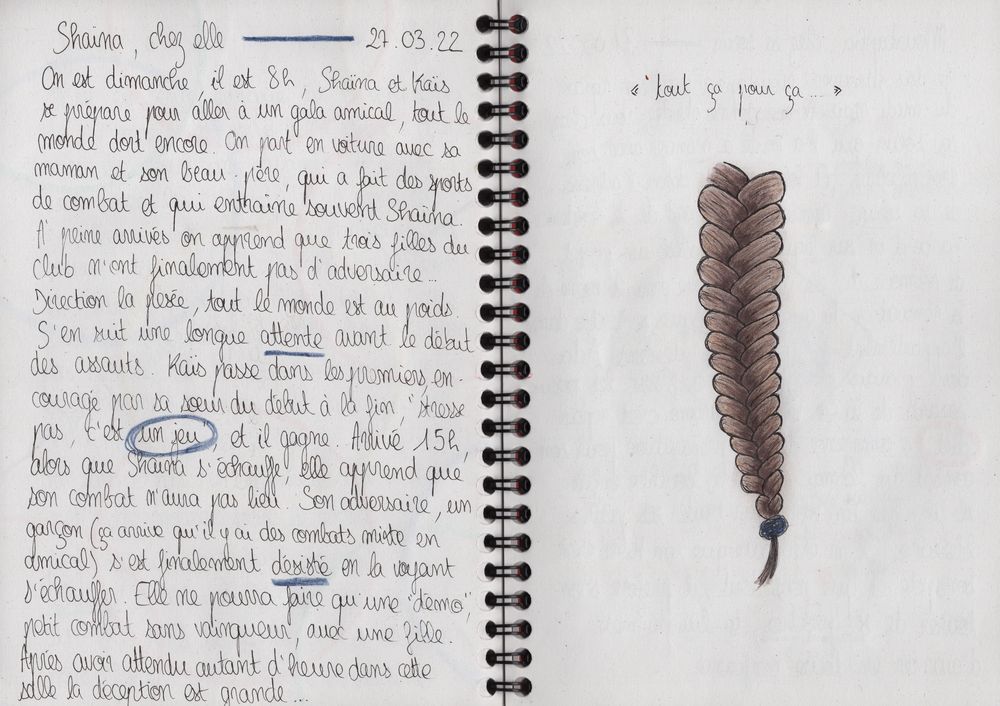 Shaina, chez elle 27.03.22
On est dimanche, il est 8h, Shaïna et Kaïs
se prépare pour aller à un gala amical, tout le
monde dort encore. On part en voiture avec sa
maman et son beau-père, qui a fait des sports
de combat et qui enthaîne souvent Shaïna.
A peine arrivés on apprend que trois filles du
club n'ont finalement pas d'adversaire...
Direction la pesée, tout le monde est au poids.
S'en suit une longue attente avant le début
des assauts. Kaïs passe dans les premiers, en-
couragé par sa sœur du début à la fin, "stresse
pas, c'est un jeu", et il gagne. Arrivé 15h
alors que Shaïna s'échauffe, elle apprend que
son combat n'aura pas lieu. Son adversaire, un
garçon (ça arrive qu'il y ai des combats mixte en
amical) s'est finalement désisté en la voyant
s'échauffer. Elle ne pourra faire qu'une "démo",
petit combat sans vainqueur, avec une fille.
Après avoir attendu autant d'heure dans cette
salle la déception est grande...
« tout ça pour ça.... »